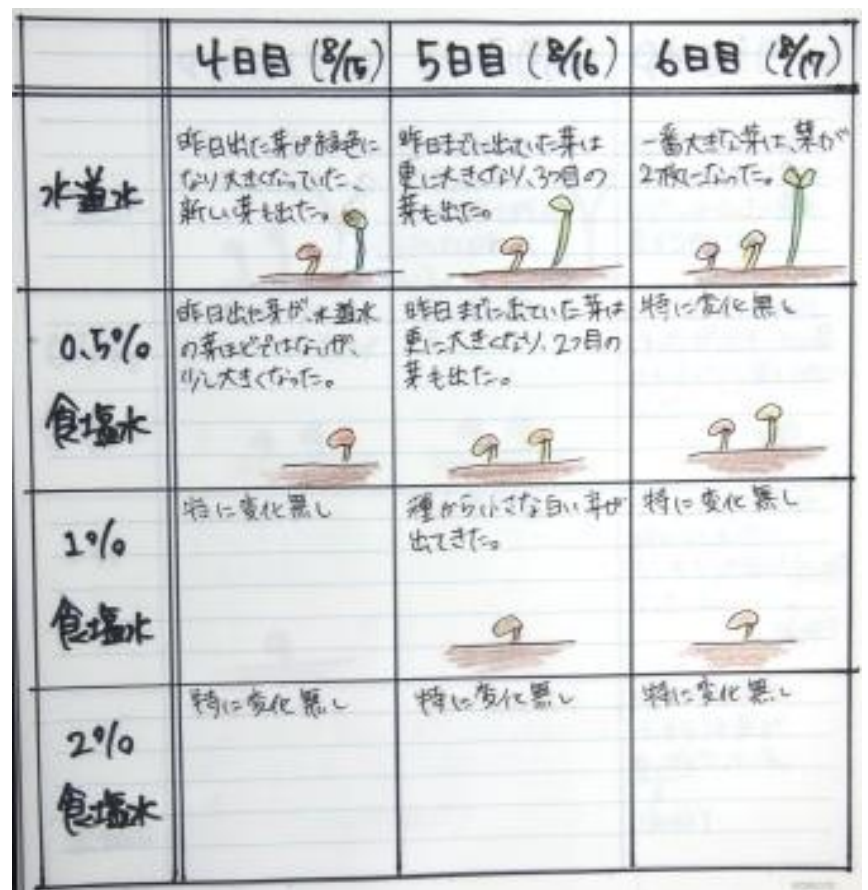 4日目 (8/15)
5日目 (8/16)
6日目 (8/17)
水道水
昨日出た芽が緑色に
なり大きくなっていた、
新しい芽も出た。
昨日までに出ていた芽は
更に大きくなり、3つ目の
芽も出た。
一番大きな芽は、葉が
2枚になった。
0.5%
食塩水
昨日出た芽が、水道水
の芽ほどではないが、
少し大きくなった。
昨日までに出ていた芽は
更に大きくなり、2つ目の
芽も出た。
特に変化無し
1%
食塩水
特に変化無し
種から小さな白い芽が
出てきた。
特に変化無し
2%
食塩水
特に変化無し
特に変化無し
特に変化無し